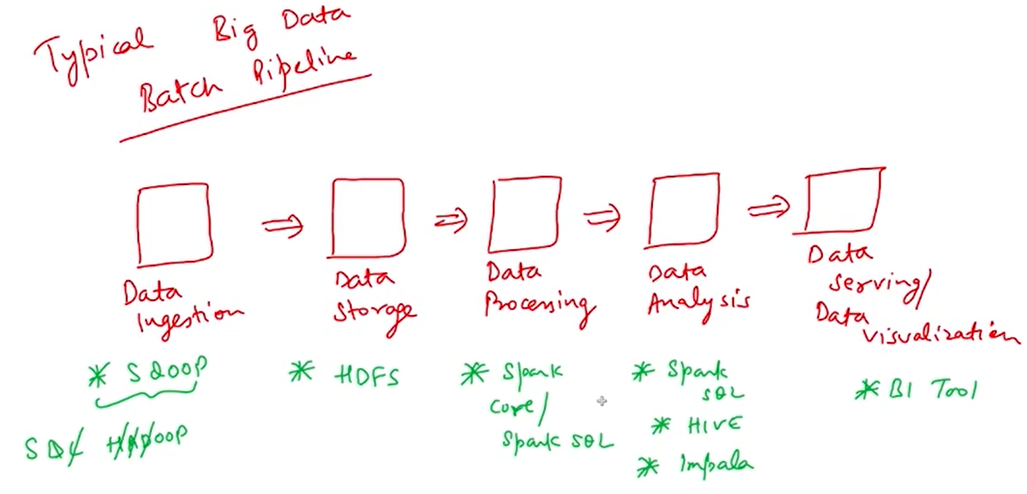 Typical Big Data
Batch Pipeline
Data
Ingestion
Data
Storage
Data
Processing
Data
Analysis
Data
Serving/
Data
visualization
* SQOOP
SQL HADOOP
* HDFS
* Spark
core/
Spark SQL
* Spark
SQL
* HIVE
* Impala
* BI Tool